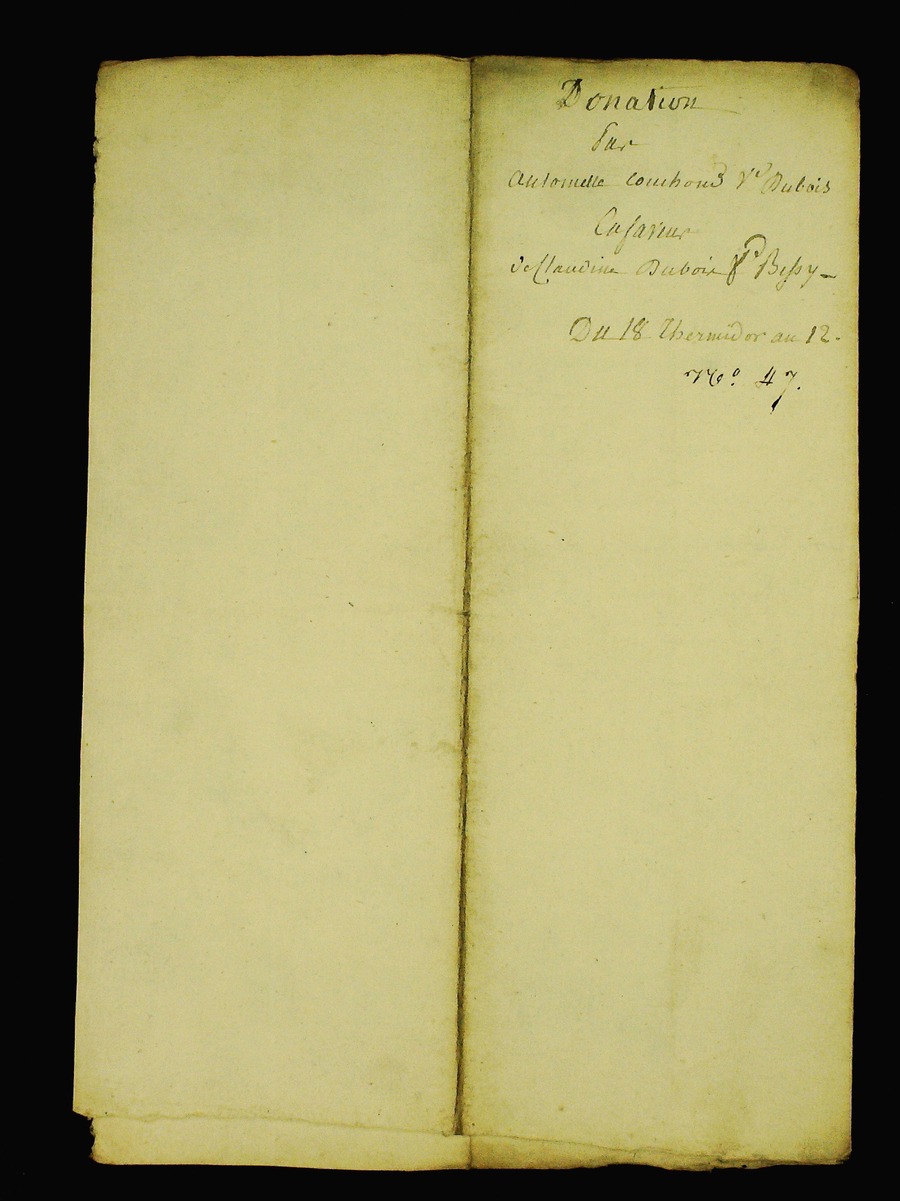 Donation
Par
antoinette couchoud Ve Dubois
En faveur
de Claudine Dubois Ve Bessy
Du 18 Thermidor an 12.
No. 47.